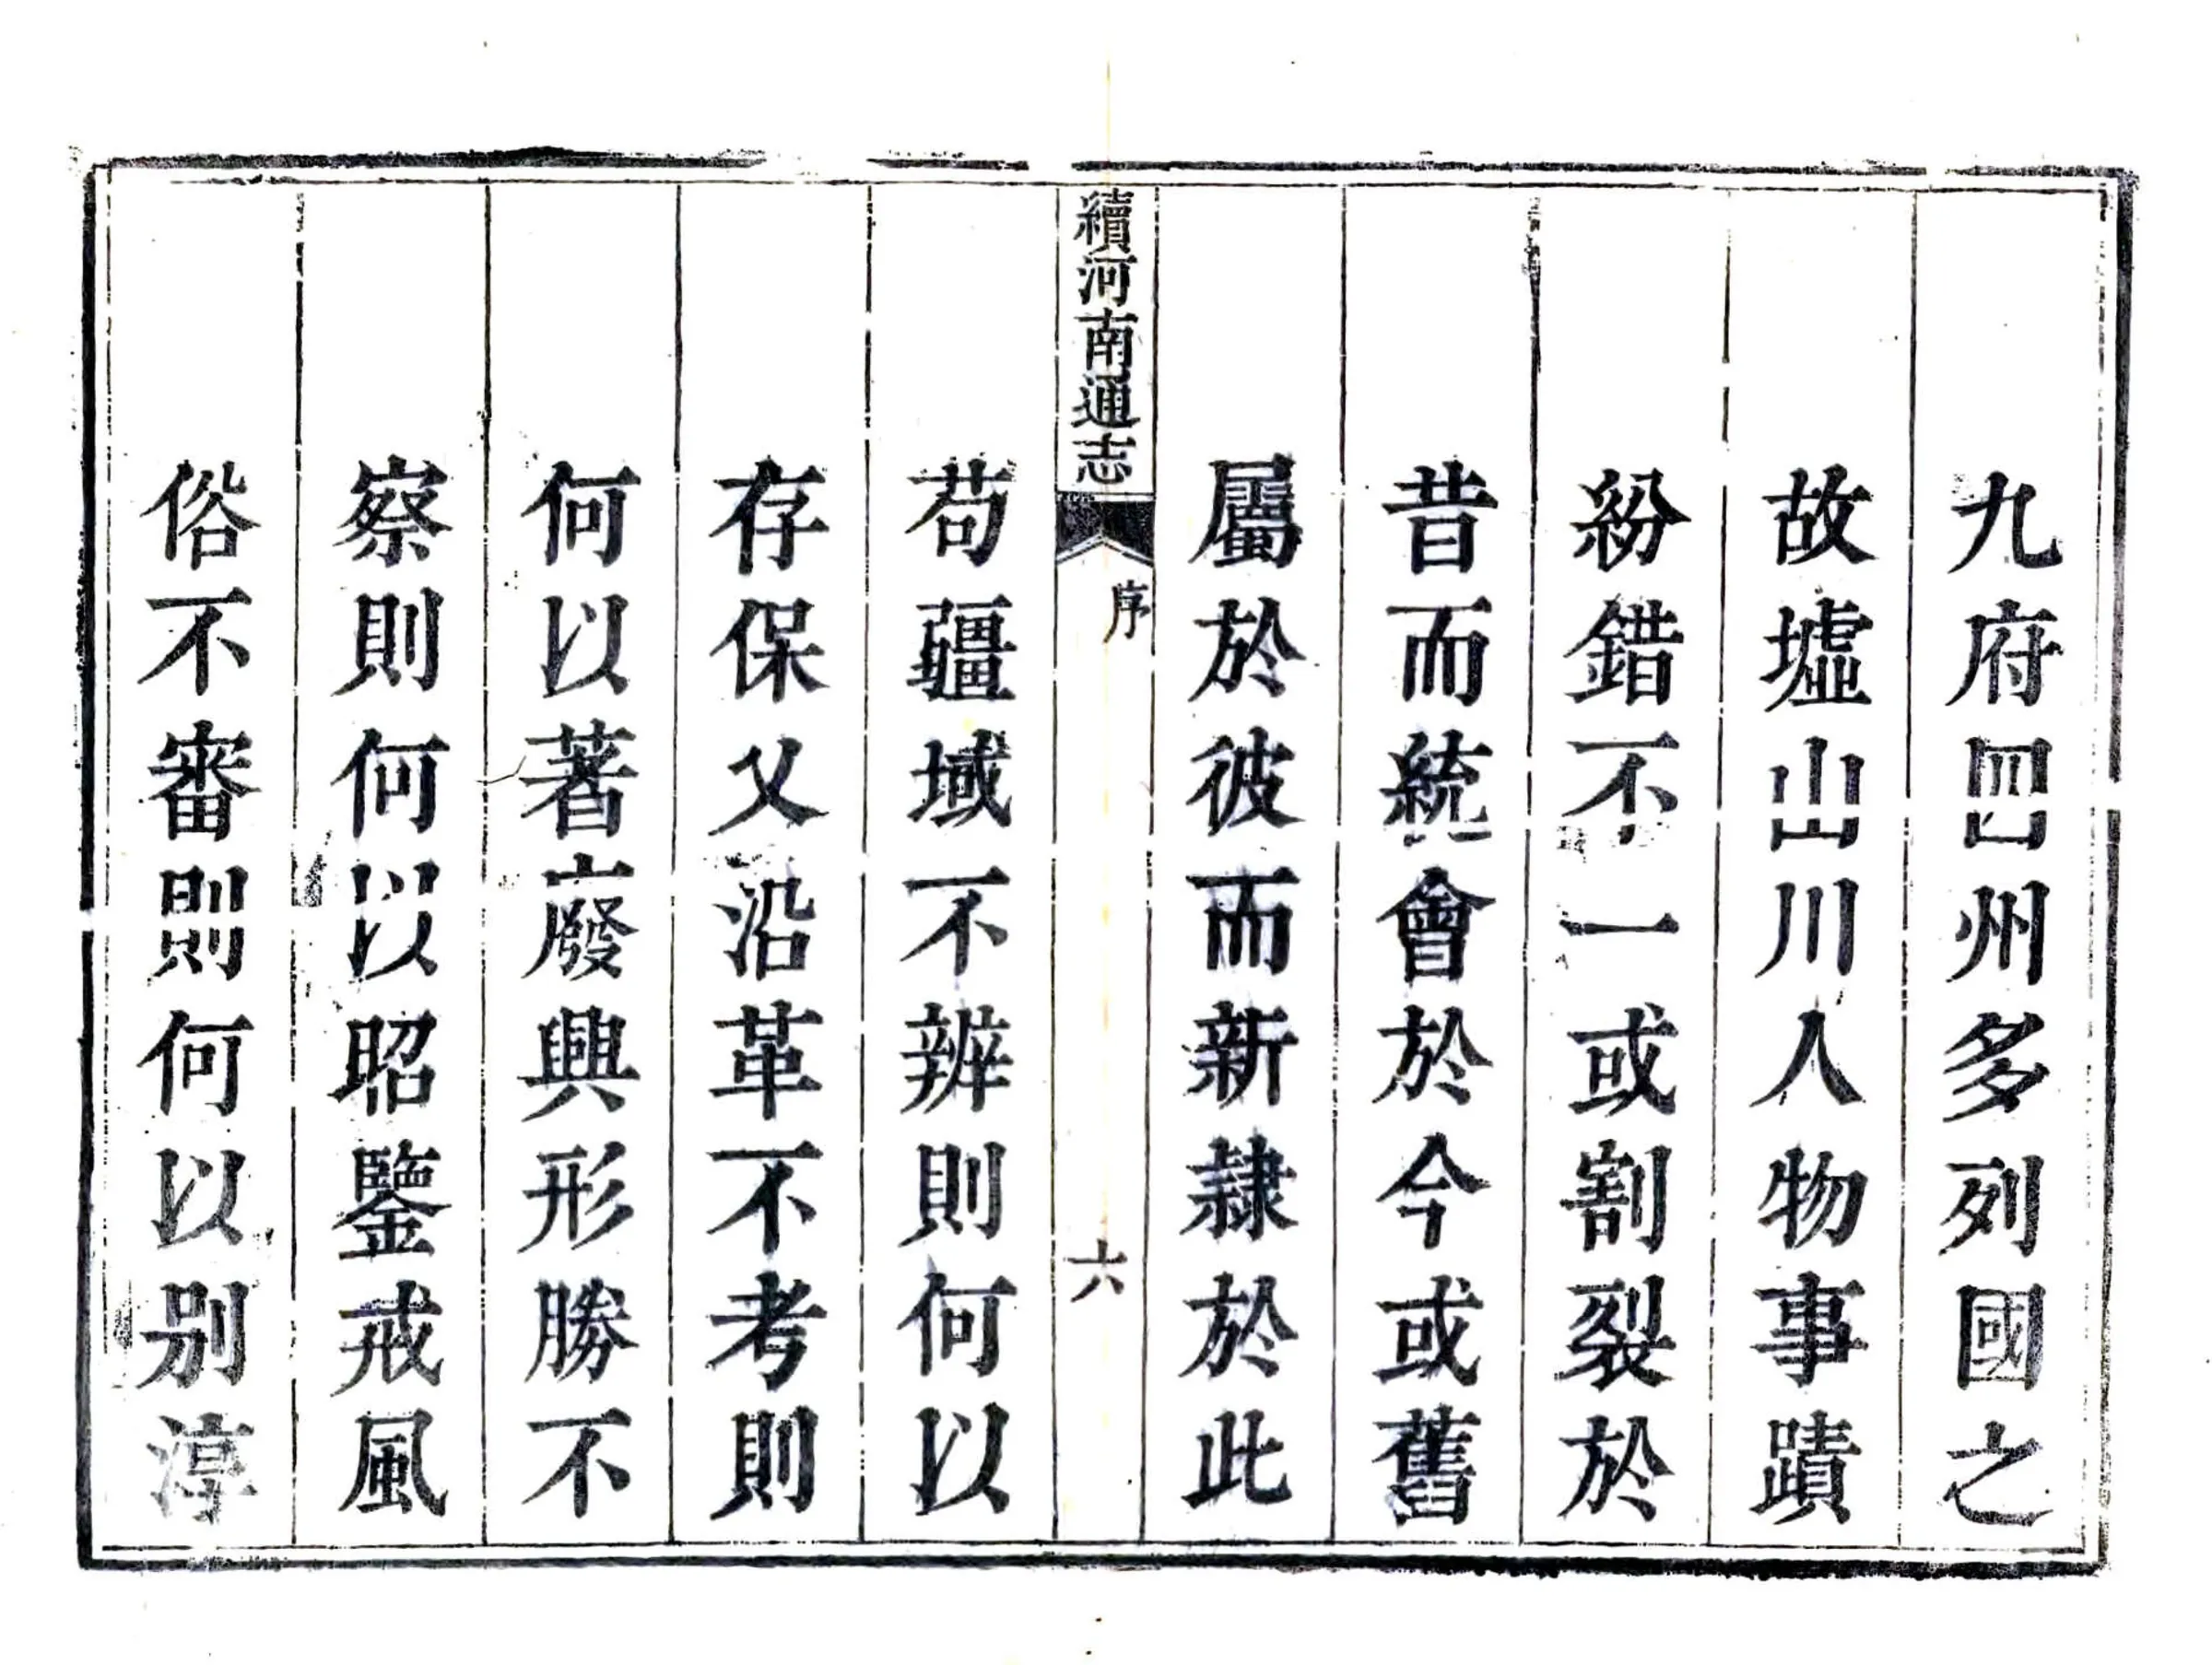 九府四州多列國之
故墟山川人物事蹟
紛錯不一或割裂於
昔而統會於今或舊
屬於彼而新隸於此
續河南通志
序
六
苟疆域不辨則何以
存保乂沿革不考則
何以著廢興形勝不
察則何以昭鑒戒風
俗不審則何以别淳